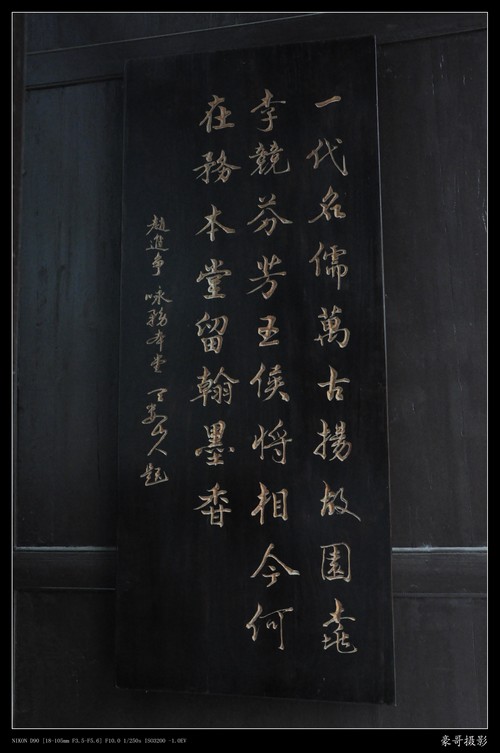 一代名儒萬古揚故園桃
李競芬芳王侯將相今何
在務本堂留翰墨香
趙進争 咏務本堂 山人題
NIKON D90 [18-105mm F3.5-F5.6] F10.0 1/250s ISO3200 -1.0EV
豪哥摄影